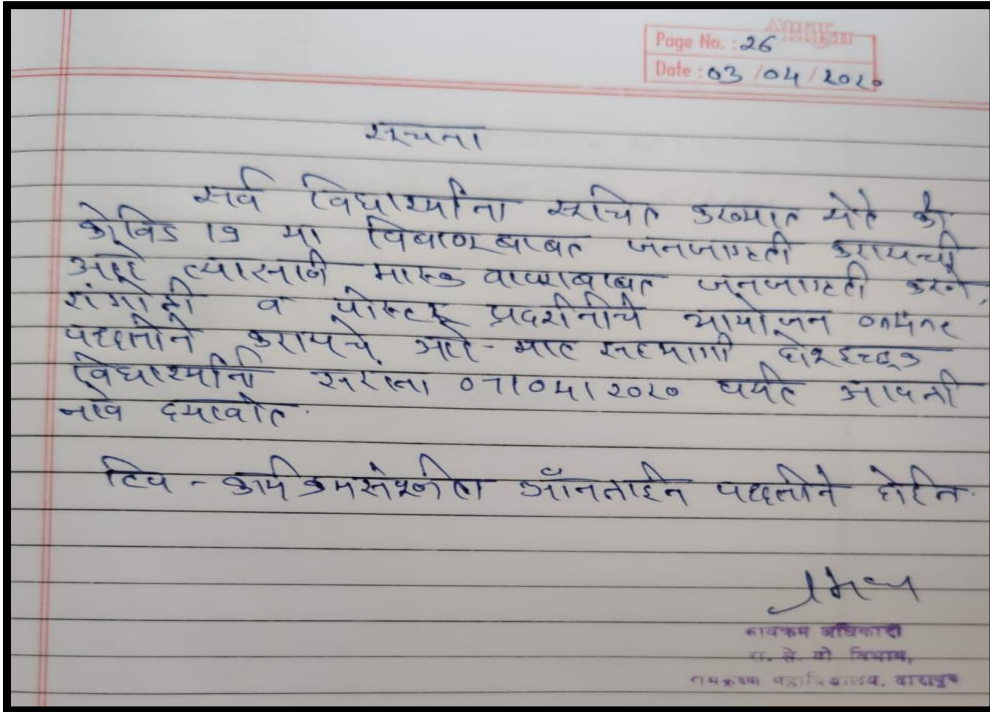 Page No. : 26
Date : 03 / 04 / 2020
सूचना
सर्व विद्यार्थ्यांना सूचित करण्यात येते की
कोविड 19 या बाबत जनजागृती करायची
आहे त्यासाठी मास्क वापराबाबत जनजागृती करणे,
रांगोळी व पोस्टर प्रदर्शनीचे आयोजन online
पद्धतीने करायचे आहे - यात सहभागी होऊ इच्छूक
विद्यार्थ्यांनी सरांना 07/04/2020 पर्यंत आपली
नावे द्यावीत.
टिप - कार्यक्रम ऑनलाईन पद्धतीने होईल.
कार्यक्रम अधिकारी
रा. से. यो विभाग,
महाविद्यालय,